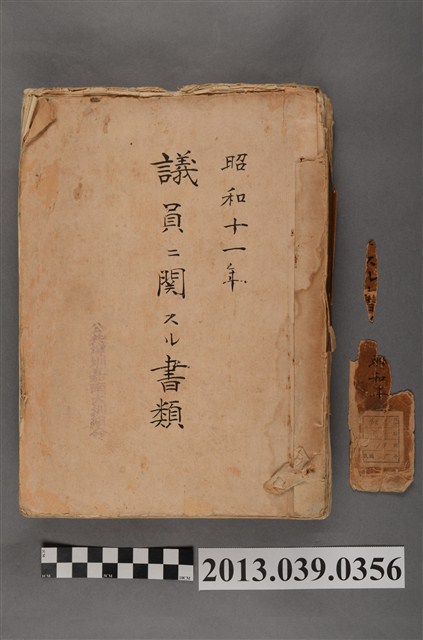 昭和十一年
議員ニ関スル書類
スル書
昭和十
2013.039.0356